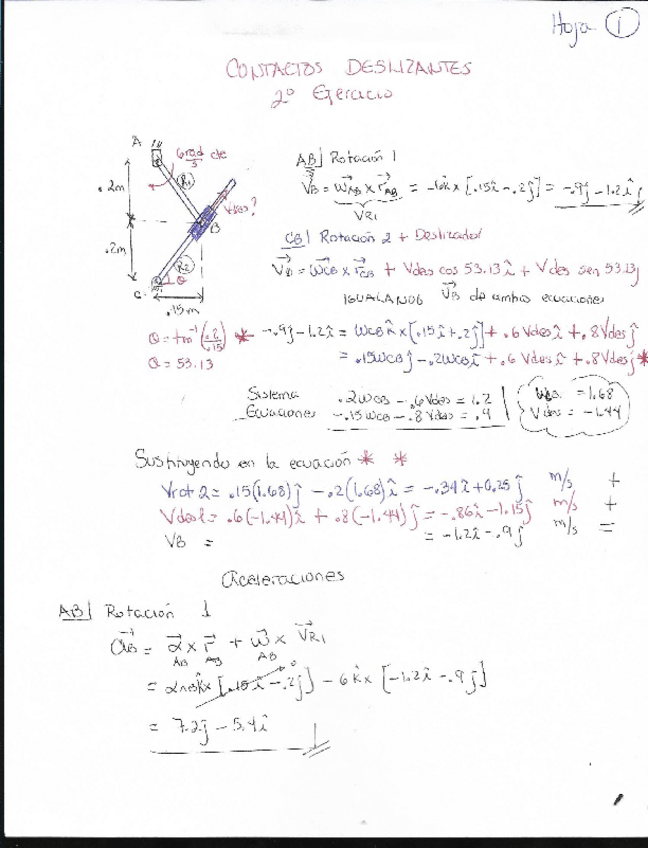 Hoja 1
CONTACTOS DESLIZANTES
2º Ejercicio
A
6 rad/s cte
R1
.2m
Vdes?
B
.2m
R2
θ
C
.15m
AB| Rotación 1
VB = ωAB x rAB = -6k x [.15i - .2j] = -.9j - 1.2i
VR1
CB| Rotación 2 + Deslizador
VB = ωCB x rCB + Vdes cos 53.13i + Vdes sen 53.13j
IGUALANDO VB de ambas ecuaciones
θ = tan⁻¹(.2/.15) * -.9j - 1.2i = ωCB k x [.15i + .2j] + .6Vdes i + .8Vdes j
θ = 53.13 = .15ωCB j - .2ωCB i + .6Vdes i + .8Vdes j *
Sistema .2ωCB - .6Vdes = 1.2
Ecuaciones -.15ωCB - .8Vdes = .9
ωCB = 1.68
Vdes = -1.44
Sustituyendo en la ecuación * *
Vrot2 = .15(1.68)j - .2(1.68)i = -.34i + 0.25j m/s +
Vdesl = .6(-1.44)i + .8(-1.44)j = -.86i - 1.15j m/s +
VB = = -1.2i - .9j m/s =
Aceleraciones
AB| Rotación 1
aB = αAB x rAB + ωAB x VR1
= αAB k x [.15i - .2j] 0 - 6k x [-1.2i - .9j]
= 7.2j - 5.4i